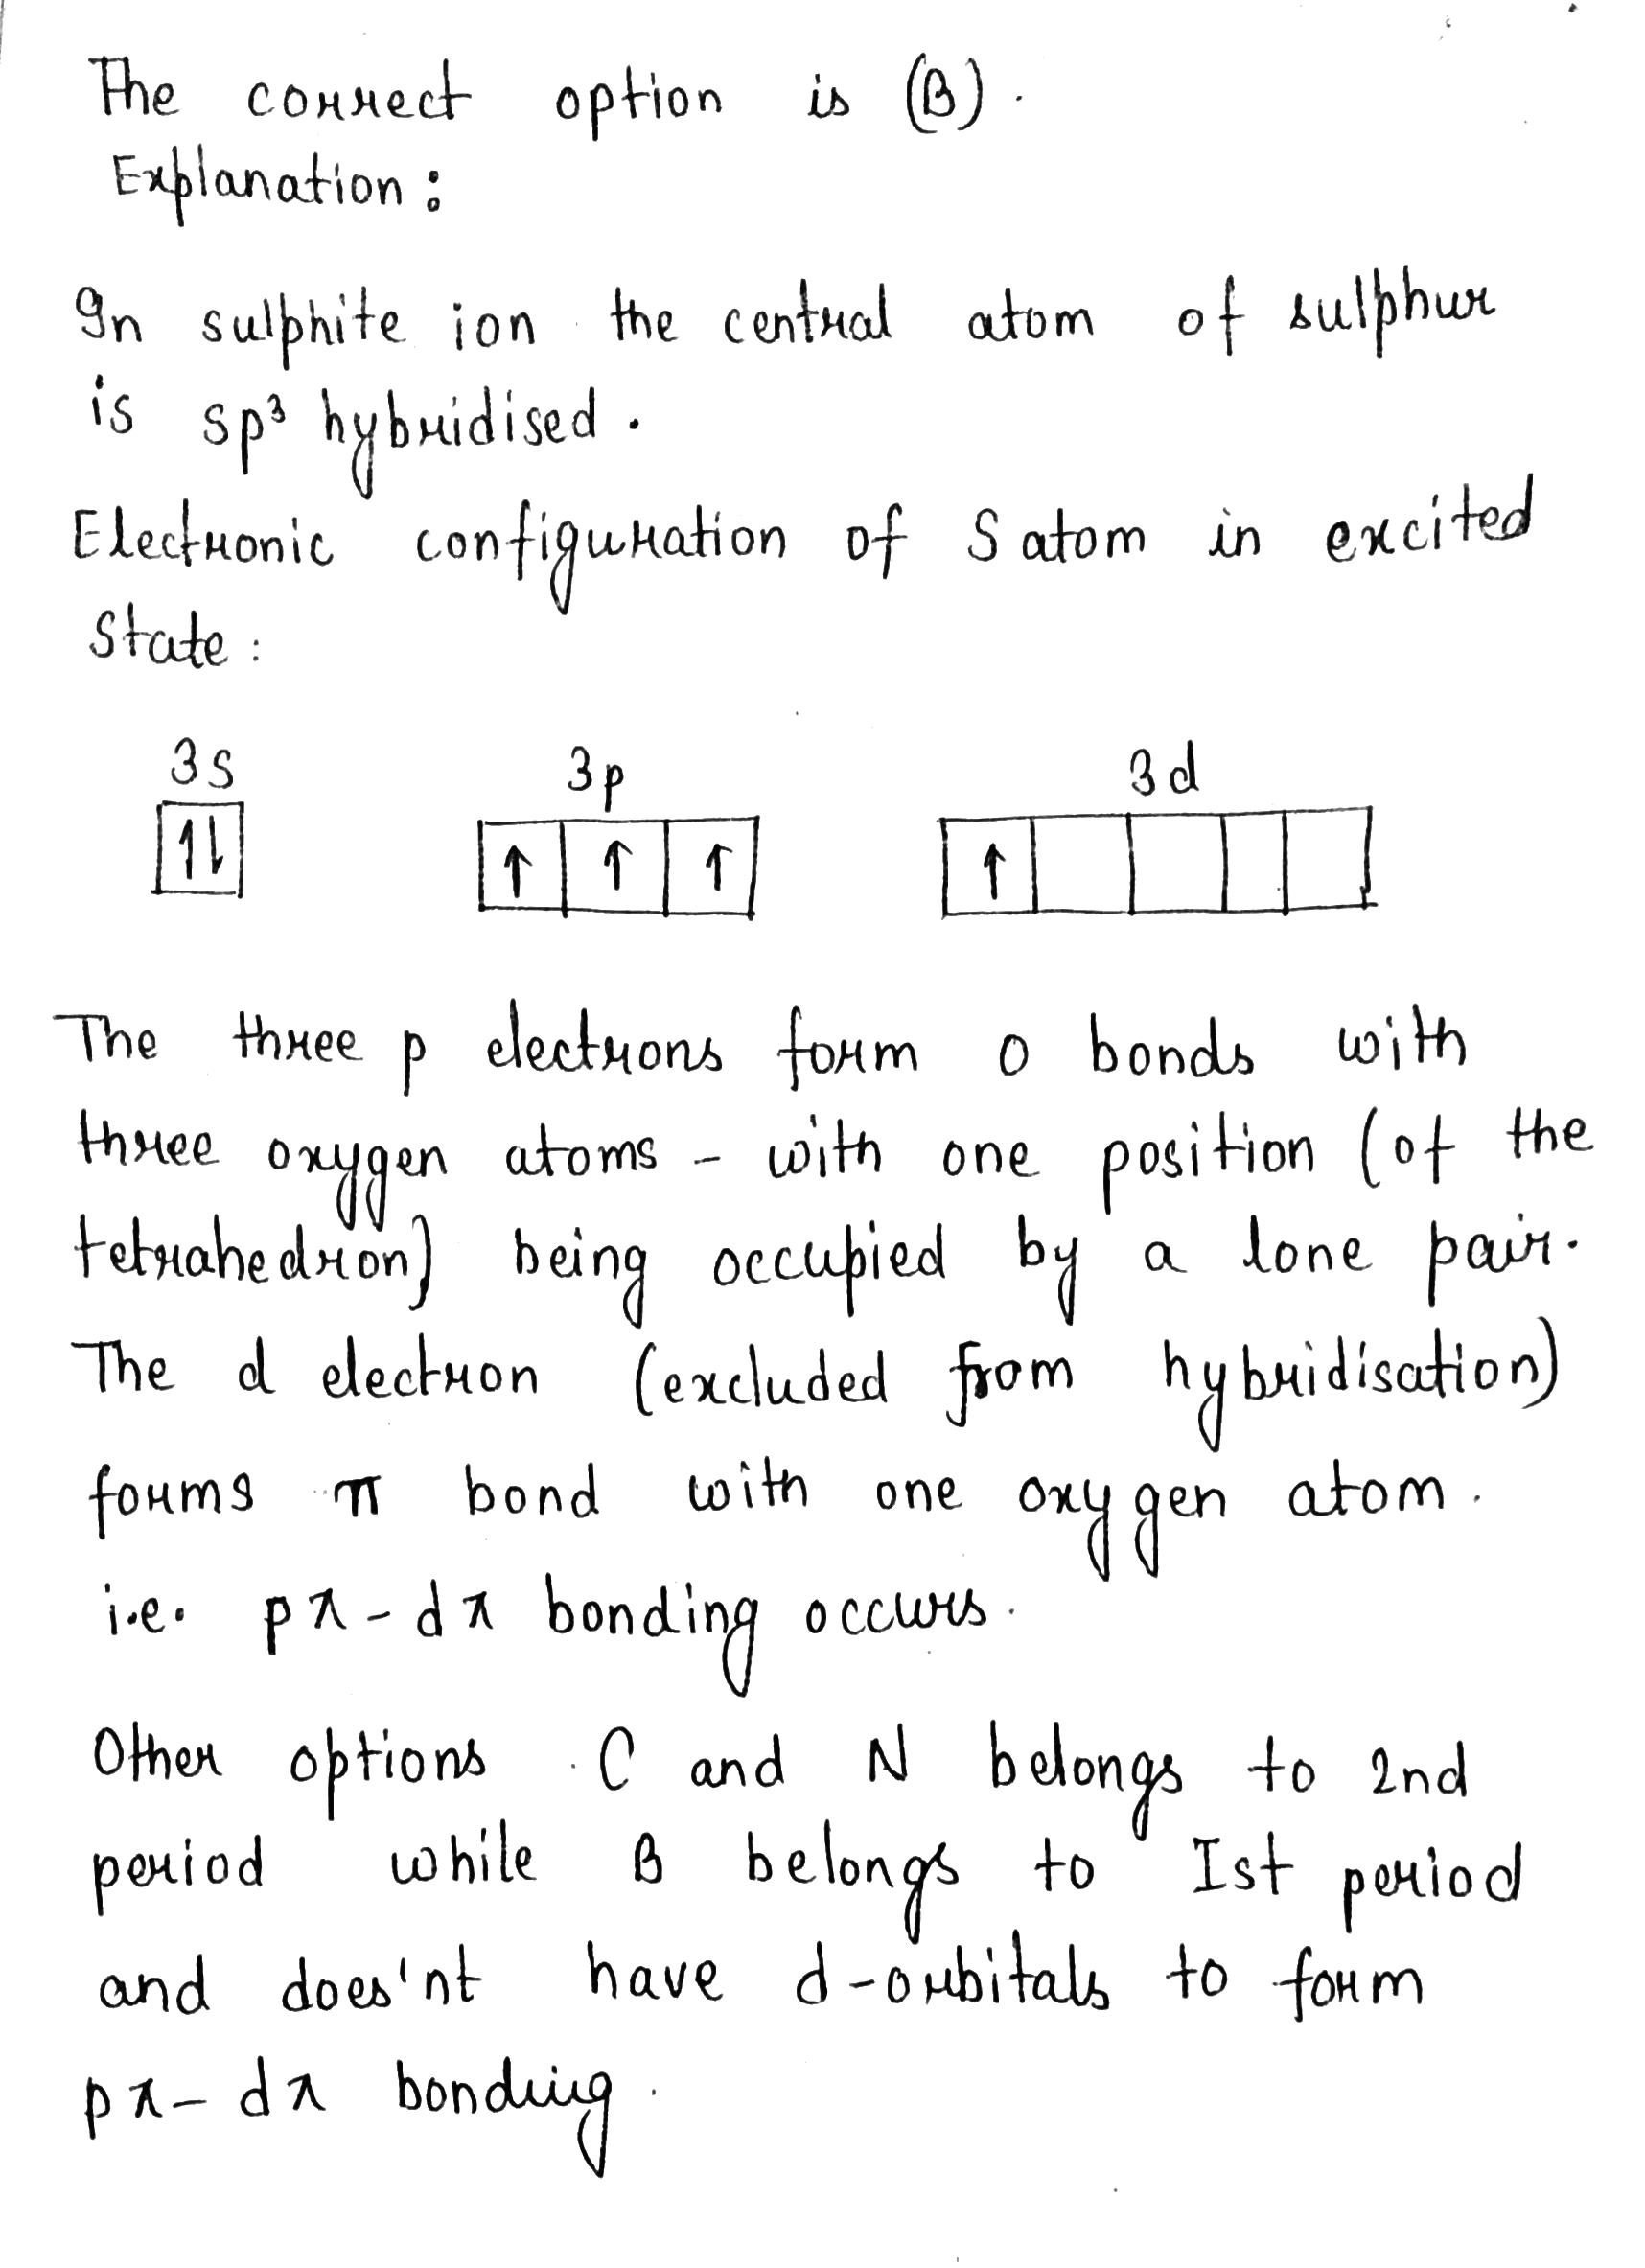 The correct option is (B).
Explanation:
In sulphite ion the central atom of sulphur
is sp³ hybridised.
Electronic configuration of S atom in excited
State:
3s 3p 3d
↑↓ ↑ ↑ ↑ ↑
The three p electrons form σ bonds with
three oxygen atoms - with one position (of the
tetrahedron) being occupied by a lone pair.
The d electron (excluded from hybridisation)
forms π bond with one oxygen atom.
i.e. pπ-dπ bonding occurs.
Other options C and N belongs to 2nd
period while B belongs to Ist period
and does'nt have d-orbitals to form
pπ-dπ bonding.